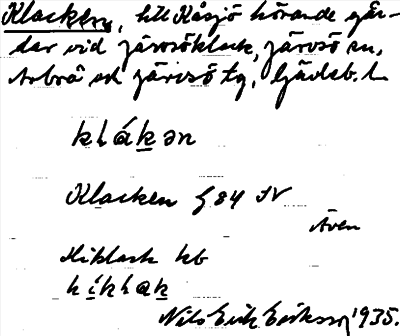 Klacken, till Kåsjö hörande går-
dar vid Järvsöklack, Järvsö sn,
Arbrå och Järvsö tg, Gävleb. l.
klákən
Klacken G 84 SV
Även
Hiklack kb
híklak
Nils Erik Eriksson 1935.